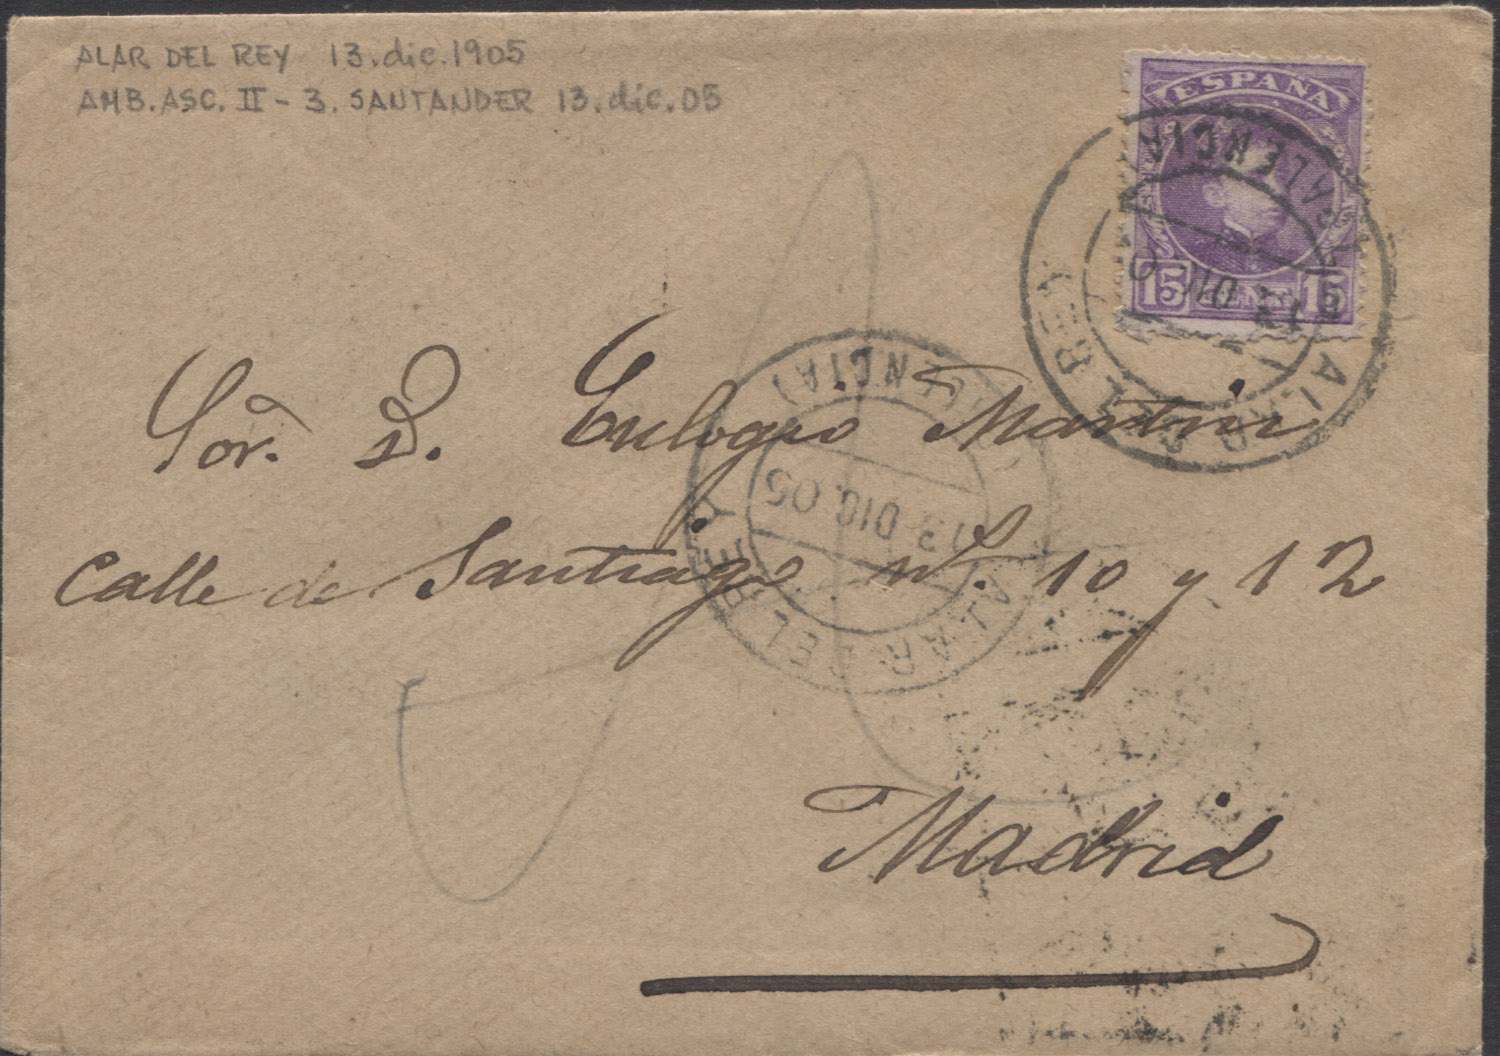 ALAR DEL REY 13.dic.1905
AMB. ASC. II - 3. SANTANDER 13.dic.05
ESPAÑA
15 CENT 15
ALAR DEL REY
PALENCIA
13 DIC 0
Sor. D. Eulogio Martin
Calle de Santiago nº. 10 y 12
ALAR DEL REY
(PALENCIA)
13 DIC. 05
Madrid